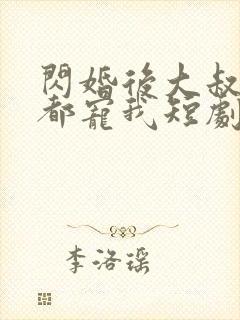 閃婚後大叔
都寵我短劇
李洛瑤